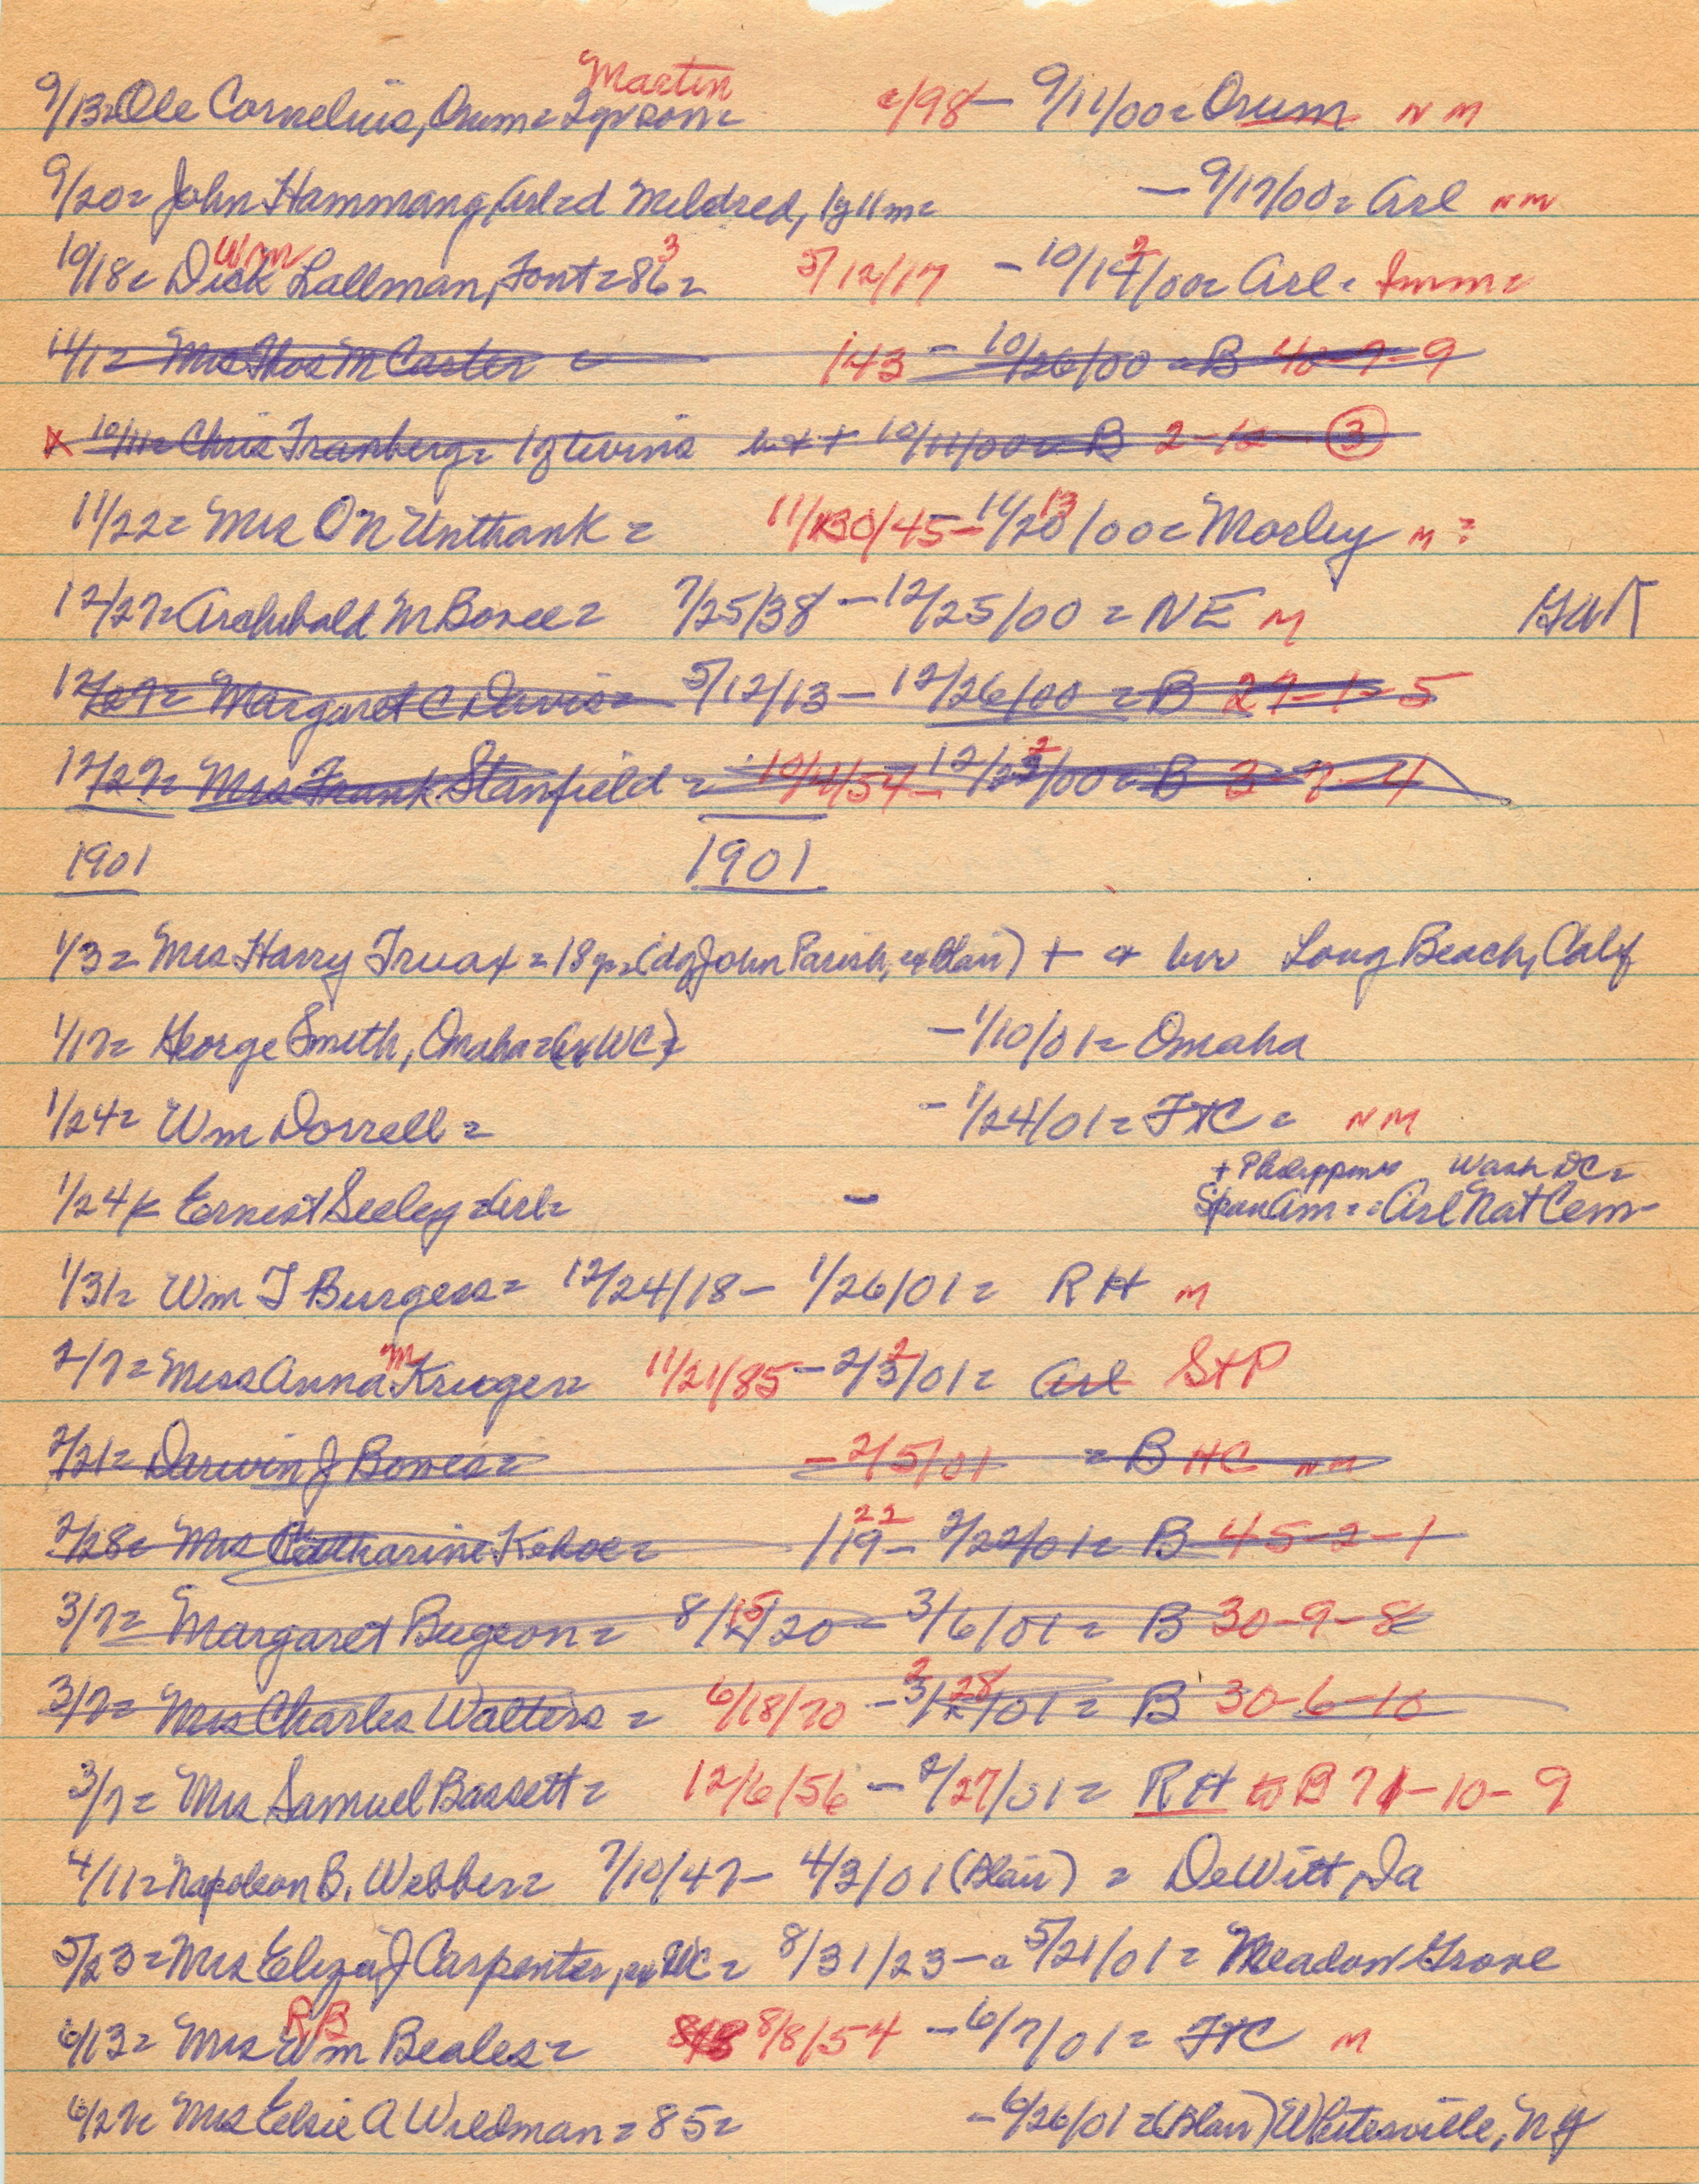 Martin
9/13= Ole Cornelius, Orum= 2yr son= c/98 — 9/11/00= Orum NM
9/20= John Hammang, Arl=d Mildred, 1y 11m= — 9/17/00= Arl NM
Wm 3 2
10/18= Dick Lallman, Font=86= 5/12/17 — 10/14/00= Arl= Imm=
11/1= Mrs Thos M Carter 1843 — 10/26/00 = B 40-7-9
X 10/11= Chris Tranberg= 1 of twins 10/11/00= B 2-12- 3
13
11/22= Mrs O N Unthank = 11/30/45 — 11/20/00= Morley M=
12/27= Archibald M Bovee= 7/25/38 — 12/25/00 = NE M GAR
12/27= Margaret C Davis= 5/12/13 — 12/26/00 = B 27-1-5
2
12/27= Mrs Frank Stanfield = 10/4/54 — 12/23/00= B 3-7-4
1901 1901
1/3= Mrs Harry Truax = 18 yr=(dg John Parish, ex Blair) + + bur Long Beach, Calf
1/17= George Smith, Omaha=(ex WC) — 1/10/01= Omaha
1/24= Wm Dorrell= — 1/24/01= FtC = NM
+ Philippines Wash DC=
1/24 Ernest Seeley =Arl= — Span Am = Arl Nat Cem
1/31= Wm T Burgess= 12/24/18 — 1/26/01= RH M
M 2
2/7= Miss Anna Krueger= 11/21/85 — 2/3/01= Arl StP
2/21= Darwin J Bowes= — 2/5/01 = B HC NM
22
2/28= Mrs Catharine Kehoe= 1819 — 2/22/01= B 45-2-1
15
3/7= Margaret Bugeon= 8/ /20 — 3/6/01= B 30-9-8
2 28
3/7= Mrs Charles Walters= 6/18/70 — 3/ /01= B 30-6-10
3/7= Mrs Samuel Bassett= 12/6/56 — 2/27/01= RH to B 71-10-9
4/11= Napoleon B. Webber= 7/10/47 — 4/3/01 (Blair) = DeWitt, Ia
5/23= Mrs Eliza J Carpenter, ex WC= 8/31/23 — 5/21/01= Meadow Grove
RB
6/13= Mrs Wm Beales= 8/8/54 — 6/7/01= FtC M
6/27= Mrs Elsie A Wildman=85= — 6/26/01=(Blair) Whitesville, NY